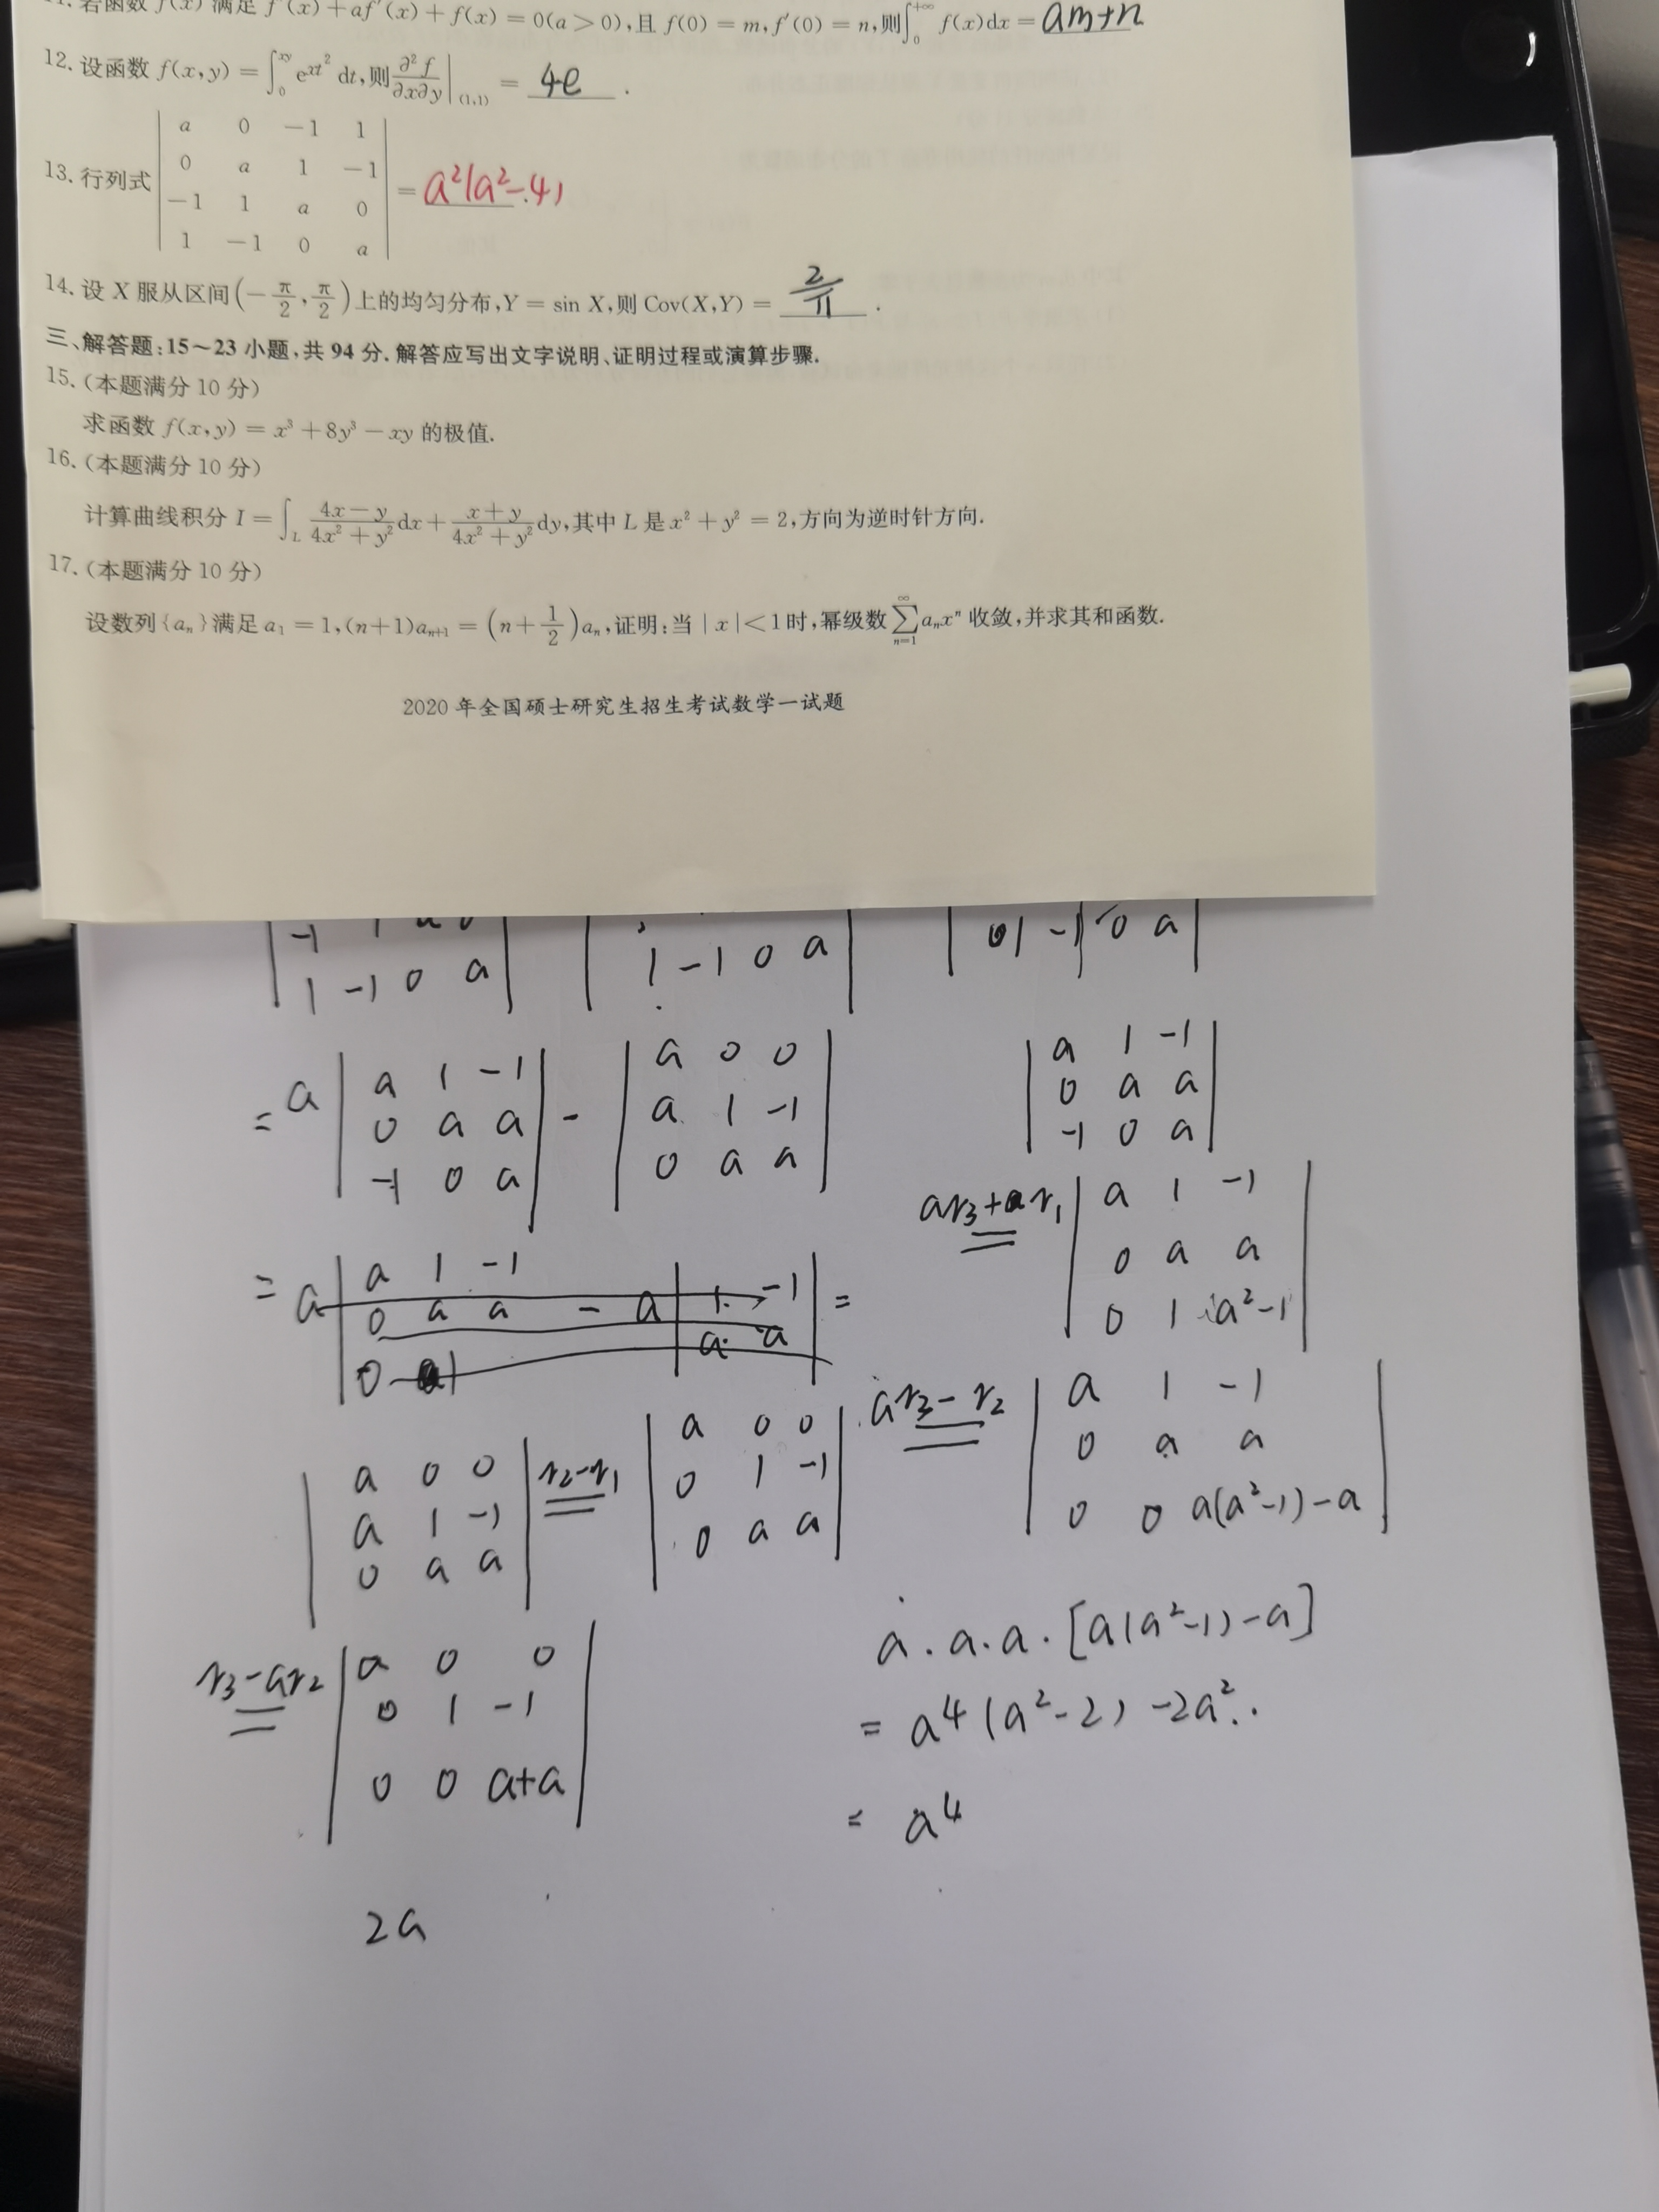 11. 若函数 f(x) 满足 f″(x)+af′(x)+f(x)=0(a>0),且 f(0)=m,f′(0)=n,则∫₀^{+∞} f(x)dx = am+n
12. 设函数 f(x,y)=∫₀^{xy} e^{xt²} dt,则 ∂²f/∂x∂y |(1,1) = 4e .
13. 行列式
| a 0 −1 1 |
| 0 a 1 −1 |
| −1 1 a 0 |
| 1 −1 0 a |
= a²(a²−4)
14. 设 X 服从区间(−π/2, π/2)上的均匀分布,Y = sin X,则 Cov(X,Y) = 2/π .
三、解答题:15~23 小题,共 94 分. 解答应写出文字说明、证明过程或演算步骤.
15. (本题满分 10 分)
求函数 f(x,y) = x³+8y³−xy 的极值.
16. (本题满分 10 分)
计算曲线积分 I = ∫_L (4x−y)/(4x²+y²) dx + (x+y)/(4x²+y²) dy,其中 L 是 x²+y²=2,方向为逆时针方向.
17. (本题满分 10 分)
设数列{aₙ}满足 a₁=1,(n+1)aₙ₊₁=(n+1/2)aₙ,证明:当 |x|<1 时,幂级数 ∑_{n=1}^{∞} aₙxⁿ 收敛,并求其和函数.
2020 年全国硕士研究生招生考试数学一试题
1 −1 0 a
1 −1 0 a
−1 0 a
= a
| a 1 −1 |
| 0 a a |
| −1 0 a |
−
| a 0 0 |
| a 1 −1 |
| 0 a a |
= a
| a 1 −1
| 0 a a
| 0
− a
| 1 −1 |
| a a |
=
| a 0 0 |
| a 1 −1 |
| 0 a a |
r₂−r₁
| a 0 0 |
| 0 1 −1 |
| 0 a a |
r₃−ar₂
| a 0 0 |
| 0 1 −1 |
| 0 0 a+a |
2a
| a 1 −1 |
| 0 a a |
| −1 0 a |
ar₃+r₁
| a 1 −1 |
| 0 a a |
| 0 1 a²−1 |
ar₃−r₂
| a 1 −1 |
| 0 a a |
| 0 0 a(a²−1)−a |
a·a·a·[a(a²−1)−a]
= a⁴(a²−2) −2a²..
= a⁴